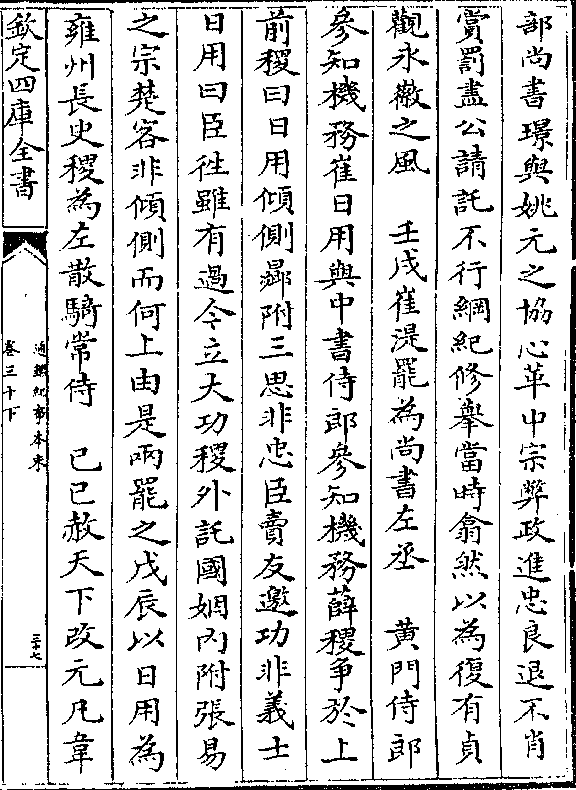 部尚書璟與姚元之協心革中宗弊政進忠良退不肖
賞罰盡公請託不行綱紀修舉當時翕然以為復有貞
觀永徽之風　壬戌崔湜罷為尚書左丞　黄門侍郎
參知機務崔日用與中書侍郎參知機務薛稷爭於上
前稷曰日用傾側曏附三思非忠臣賣友邀功非義士
日用曰臣徃雖有過今立大功稷外託國姻内附張易
之宗楚客非傾側而何上由是兩罷之戊辰以日用為
雍州長史稷為左散騎常侍　己巳赦天下改元凡韋
欽定四庫全書
通鑑紀事本末
卷三十下
三十七